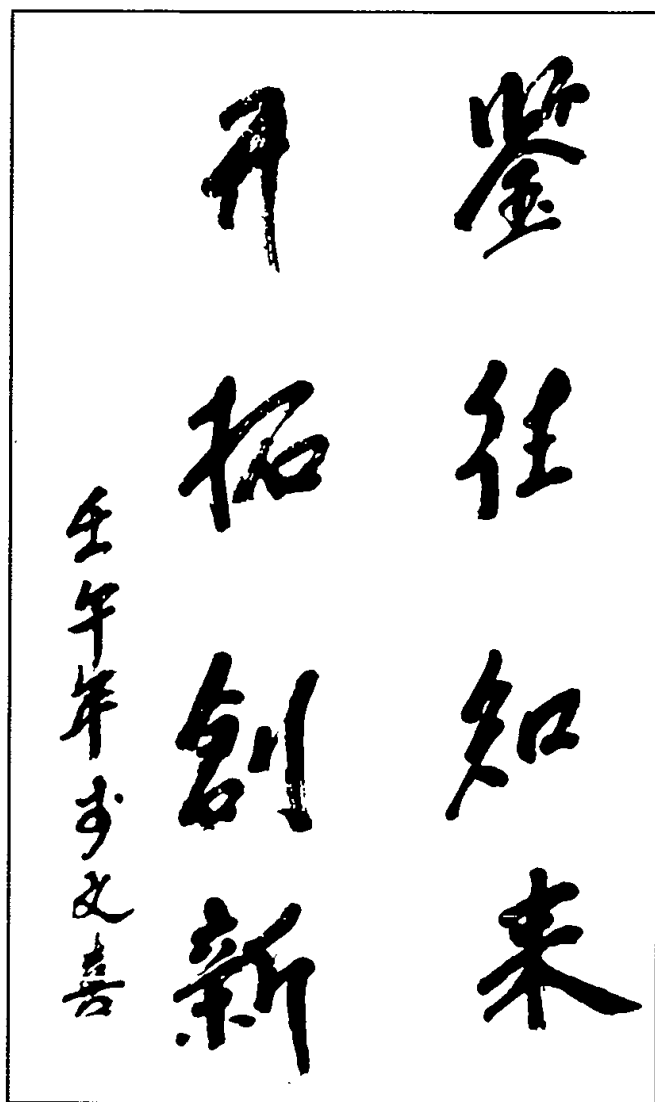 鉴往知来
开拓創新
壬午年 文喜